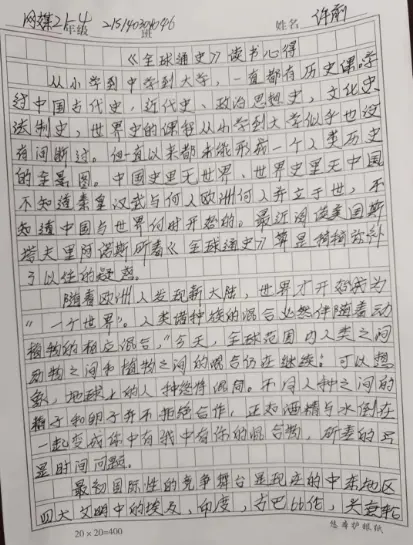 网媒21-4 年级 215140301046 班 姓名 许
《全球通史》读书心得
从小学到中学到大学，一直都有历史课。学
过中国古代史，近代史，政治思想史，文化史
法制史，世界史的课程从小学到大学似乎也没
有间断过。但直以来都未能形成一个人类历史
的全景图。中国史里无世界，世界史里无中国
不知道秦皇汉武与何人欧洲何人并立于世，不
知道中国与世界何时开始的。最近阅读美国斯
塔夫里阿诺斯所著《全球通史》算是稍稍弥补
了以往的疑惑。
随着欧洲人发现新大陆，世界才开始成为
"一个世界"。人类诸种族的混合必然伴随着动
植物的相应混合。"今天，全球范围内人类之间
动物之间和植物之间的混合仍在继续；可以想
象，地球上的人种终将混同。不同人种之间的
精子和卵子并不拒绝合作，正如酒精与水倒在
一起变成你中有我中有你的混合物，所差的只
是时间问题。
最初国际性的竞争舞台是现在的中东地区
四大文明中的埃及，印度，古巴比伦，
20×20=400